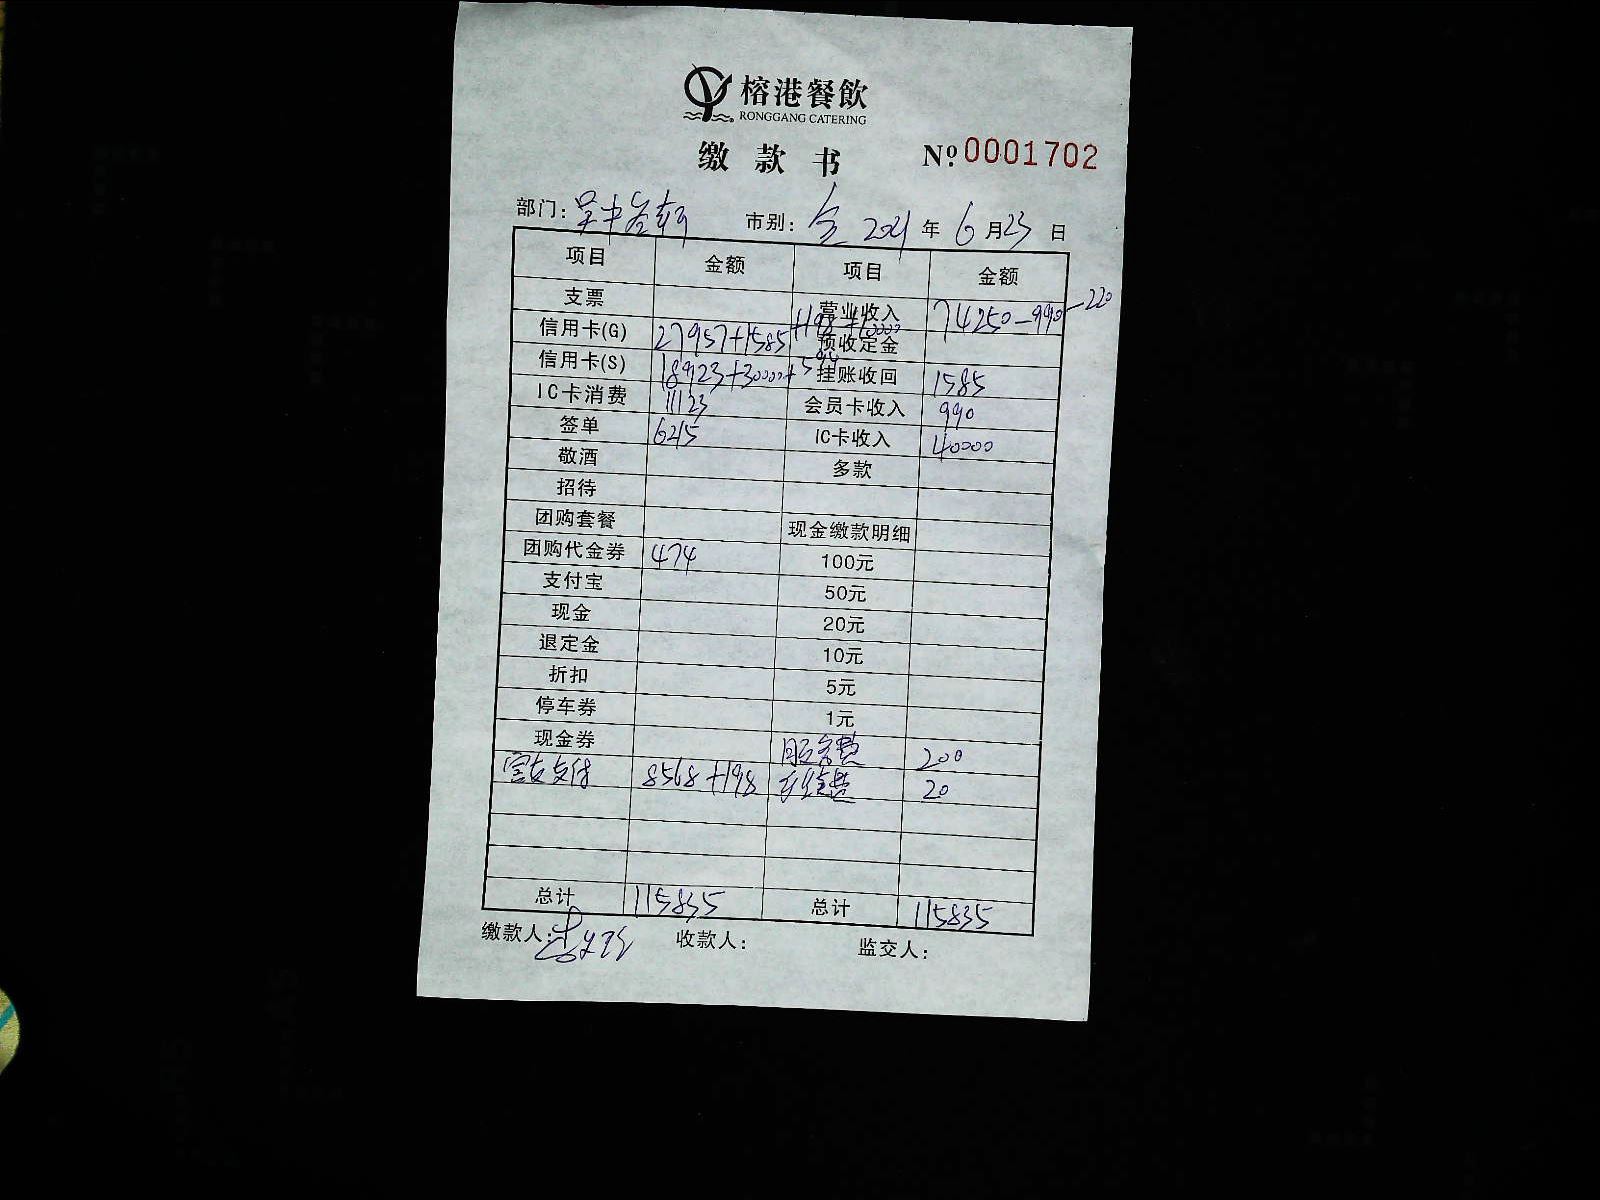 榕港餐飲
RONGGANG CATERING
缴款书 №0001702
部门: 吴中 市别: 全 2021年6月23日
项目 金额 项目 金额
支票 营业收入 74250-990-220
信用卡(G) 27957+1585+198+10000 预收定金
信用卡(S) 18923+30000+594 挂账收回 1585
IC卡消费 11123 会员卡收入 990
签单 6215 IC卡收入 40000
敬酒 多款
招待
团购套餐 现金缴款明细
团购代金券 474 100元
支付宝 50元
现金 20元
退定金 10元
折扣 5元
停车券 1元
现金券 服务费 200
支付 8568+198 手续费 20
总计 115835 总计 115835
缴款人: 收款人: 监交人: